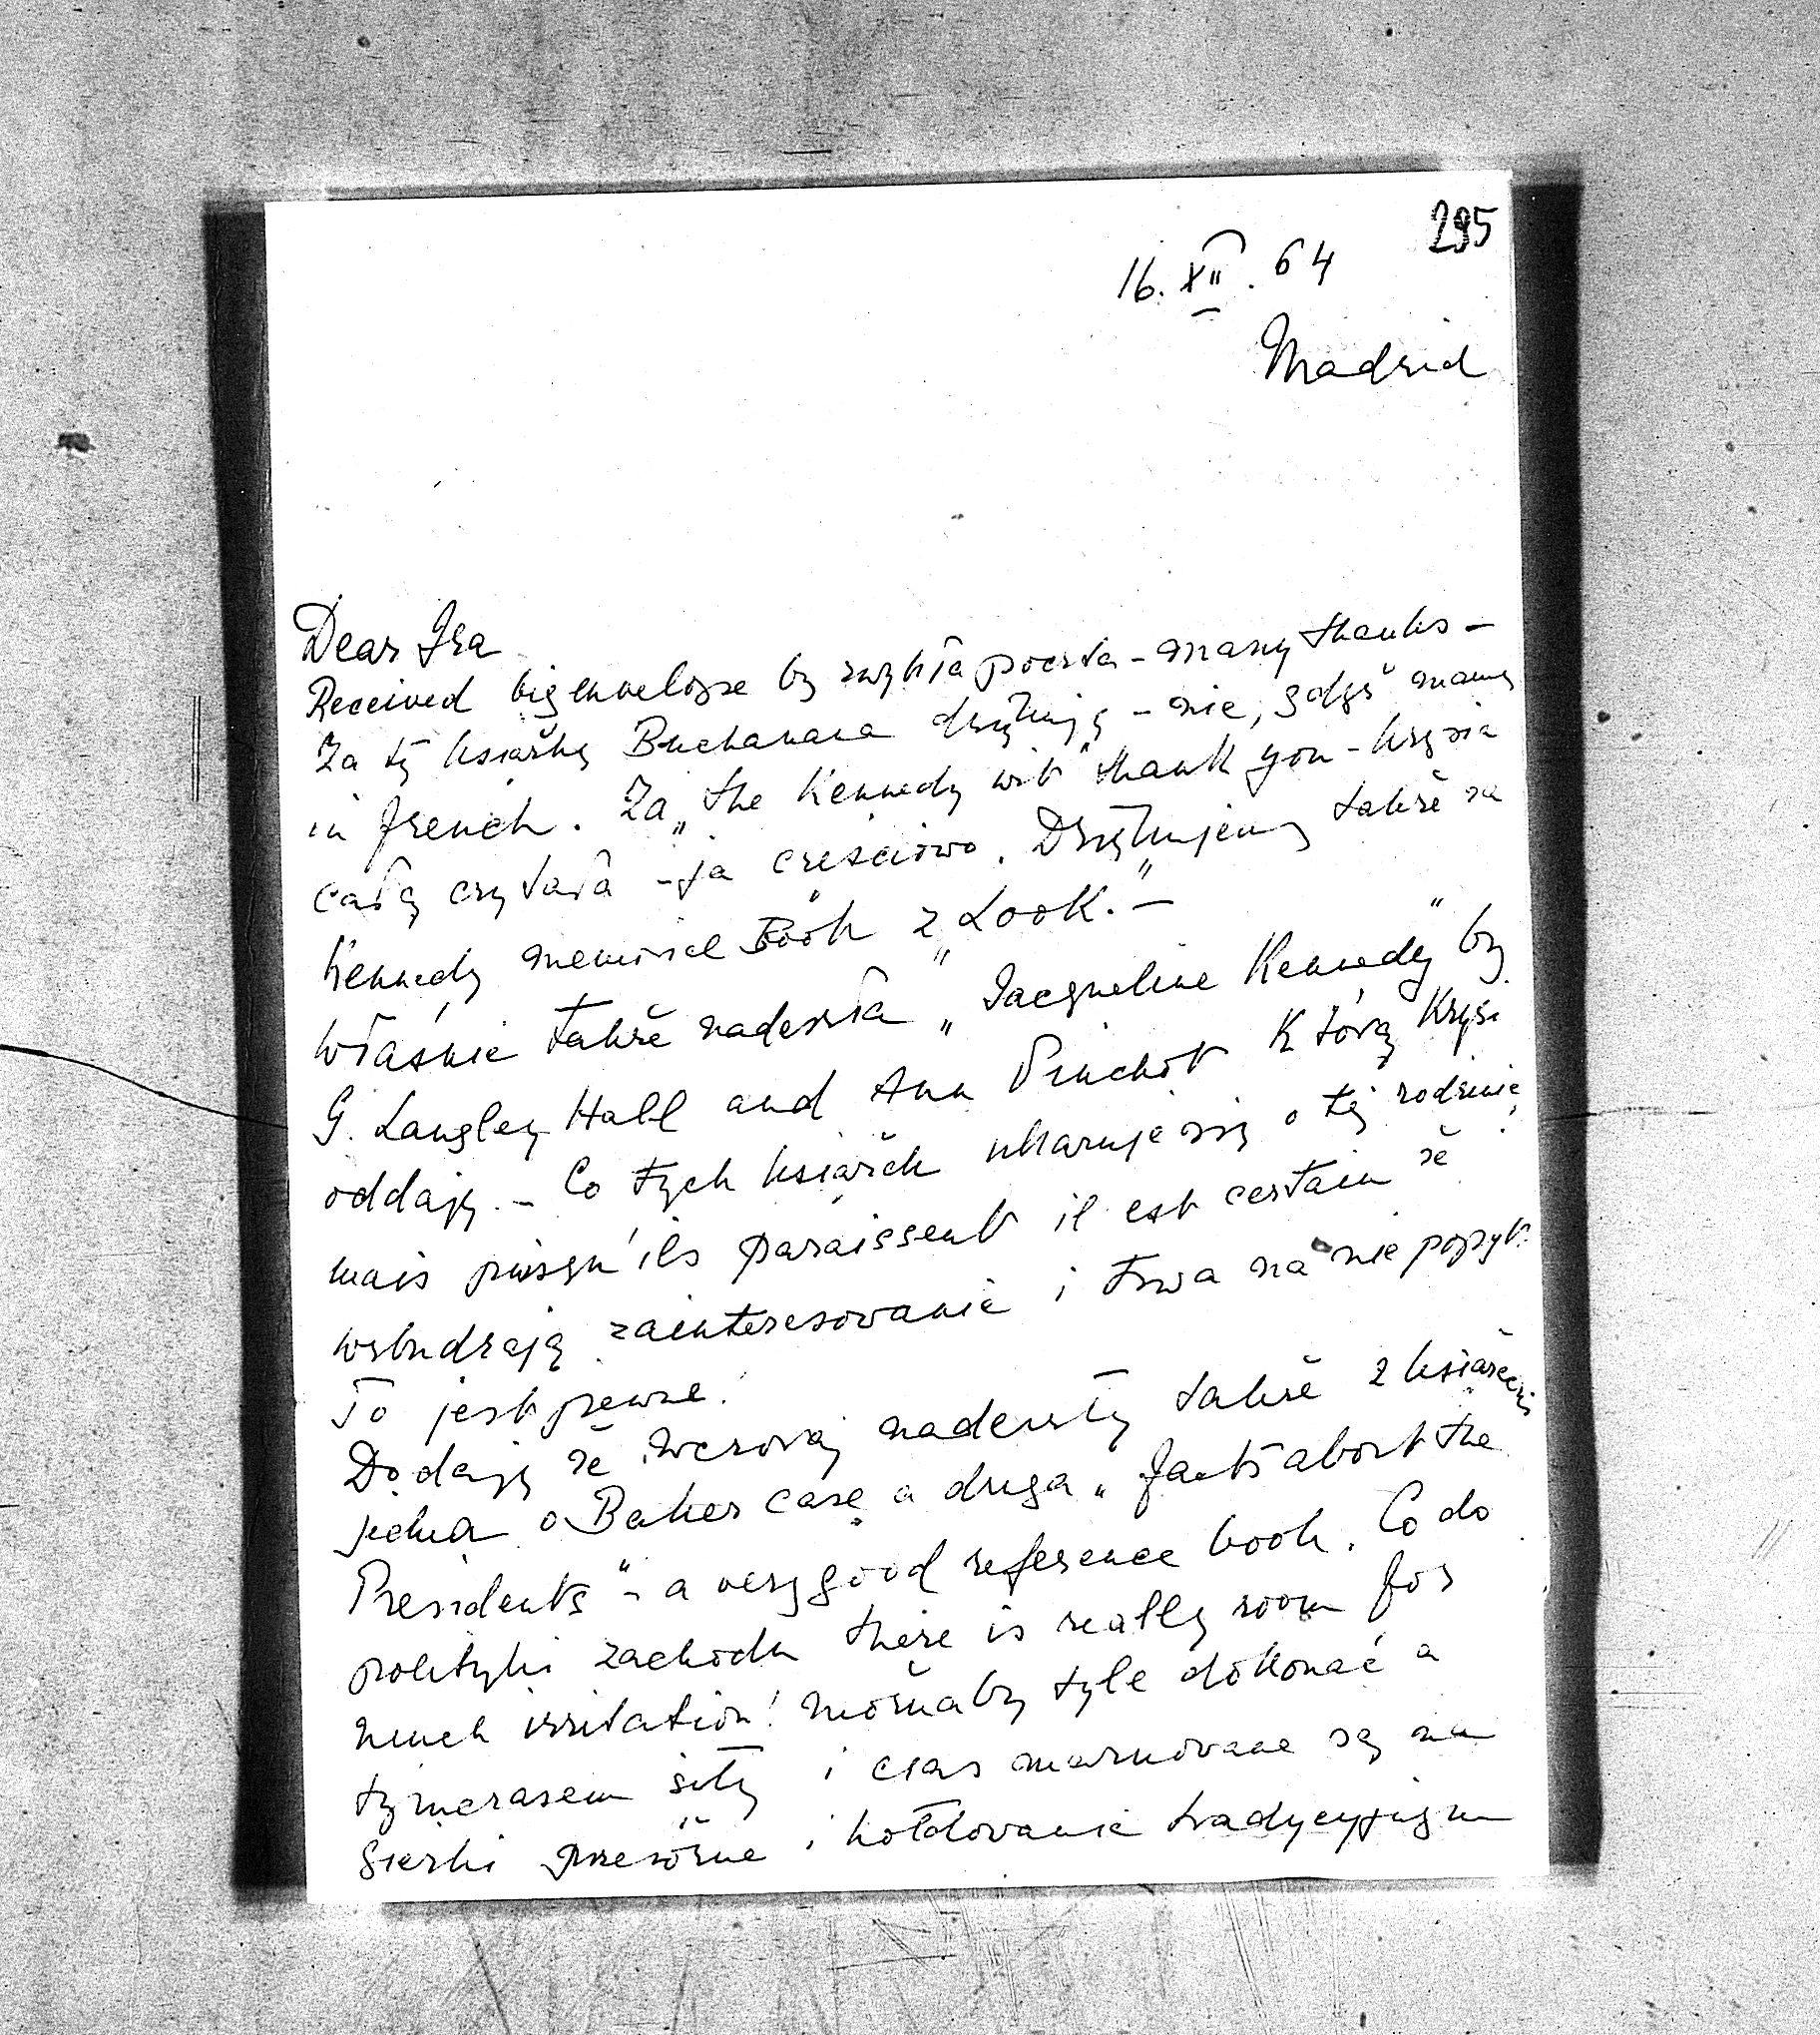 295
16.XII.64
Madrid
Dear Ira
Received big envelope by zwykła poczta - many thanks -
Za tę książkę Buchanana dziękuję - nie, gdyż mamy
in french. Za „the Kennedy wit" thank you - Krysia
całą czytała - ja częściowo. Dziękujemy także za
Kennedy memorial Book z „Look". -
Właśnie także nadeszła „Jacqueline Kennedy" by
G. Langley Hall and Ann Pinchot którą Krysi
oddaję. - Co tych książek ukazuje się o tej rodzinie!
mais puisqu'ils paraissent il est certain że
wzbudzają zainteresowanie i trwa na nie popyt.
To jest pewne!
Dodaję że wczoraj nadeszły także 2 książeczki
jedna o Baker case a druga „facts about the
Presidents" - a very good reference book. Co do
polityki zachodu there is really room for
much irritation! Możnaby tyle dokonać a
tymczasem siły i czas marnowane są na
gierki przeróżne i hołdowanie tradycyjnym